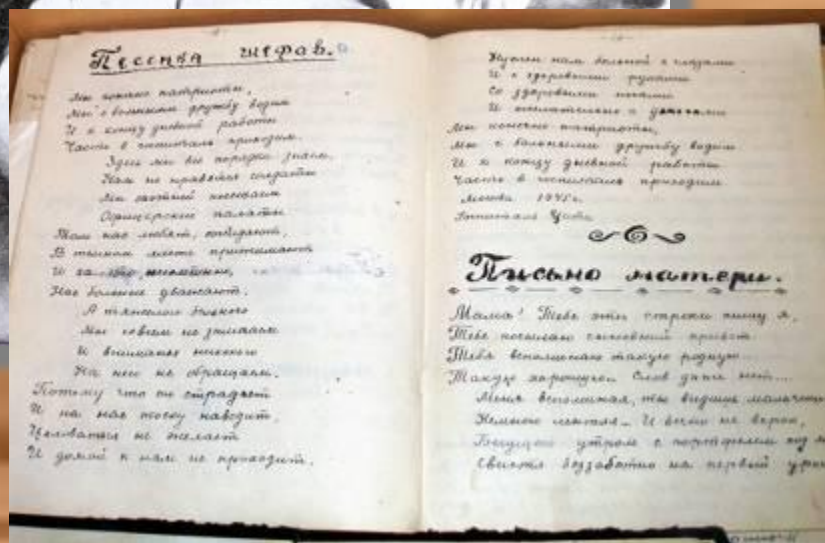 Песенка шефов.
Мы конечно патриоты,
Мы с больными дружбу водим
И к концу дневной работы
Часто в госпиталь приходим.
Здесь мы все порядки знаем,
Нам не нравятся солдаты
Мы охотней посещаем
Офицерские палаты
Там нас любят, ожидают,
В тёмном месте прижимают
И за это
Нас больные уважают.
А тяжелого больного
Мы совсем не занимаем
И вниманья никакого
На него не обращаем.
Потому что он страдает
И на нас тоску наводит.
Целоваться не желает
И домой к нам не приходит.
Нужен нам больной с глазами
И с здоровыми руками
Со здоровыми ногами
И желательно с
Мы конечно патриоты,
Мы с больными дружбу водим
И к концу дневной работы
Часто в госпиталь приходим
Москва 1945г.
Госпиталь
Письмо матери.
Мама! Тебе эти строки пишу я,
Тебе посылаю сыновний привет.
Тебя вспоминаю такую родную
Такую хорошую. Слов даже нет...
Меня вспоминая, ты видишь мальчиш
Немного лентяя.. И вечно не верно,
Бегущего утром с портфелем под м
Свистя беззаботно на первый урок